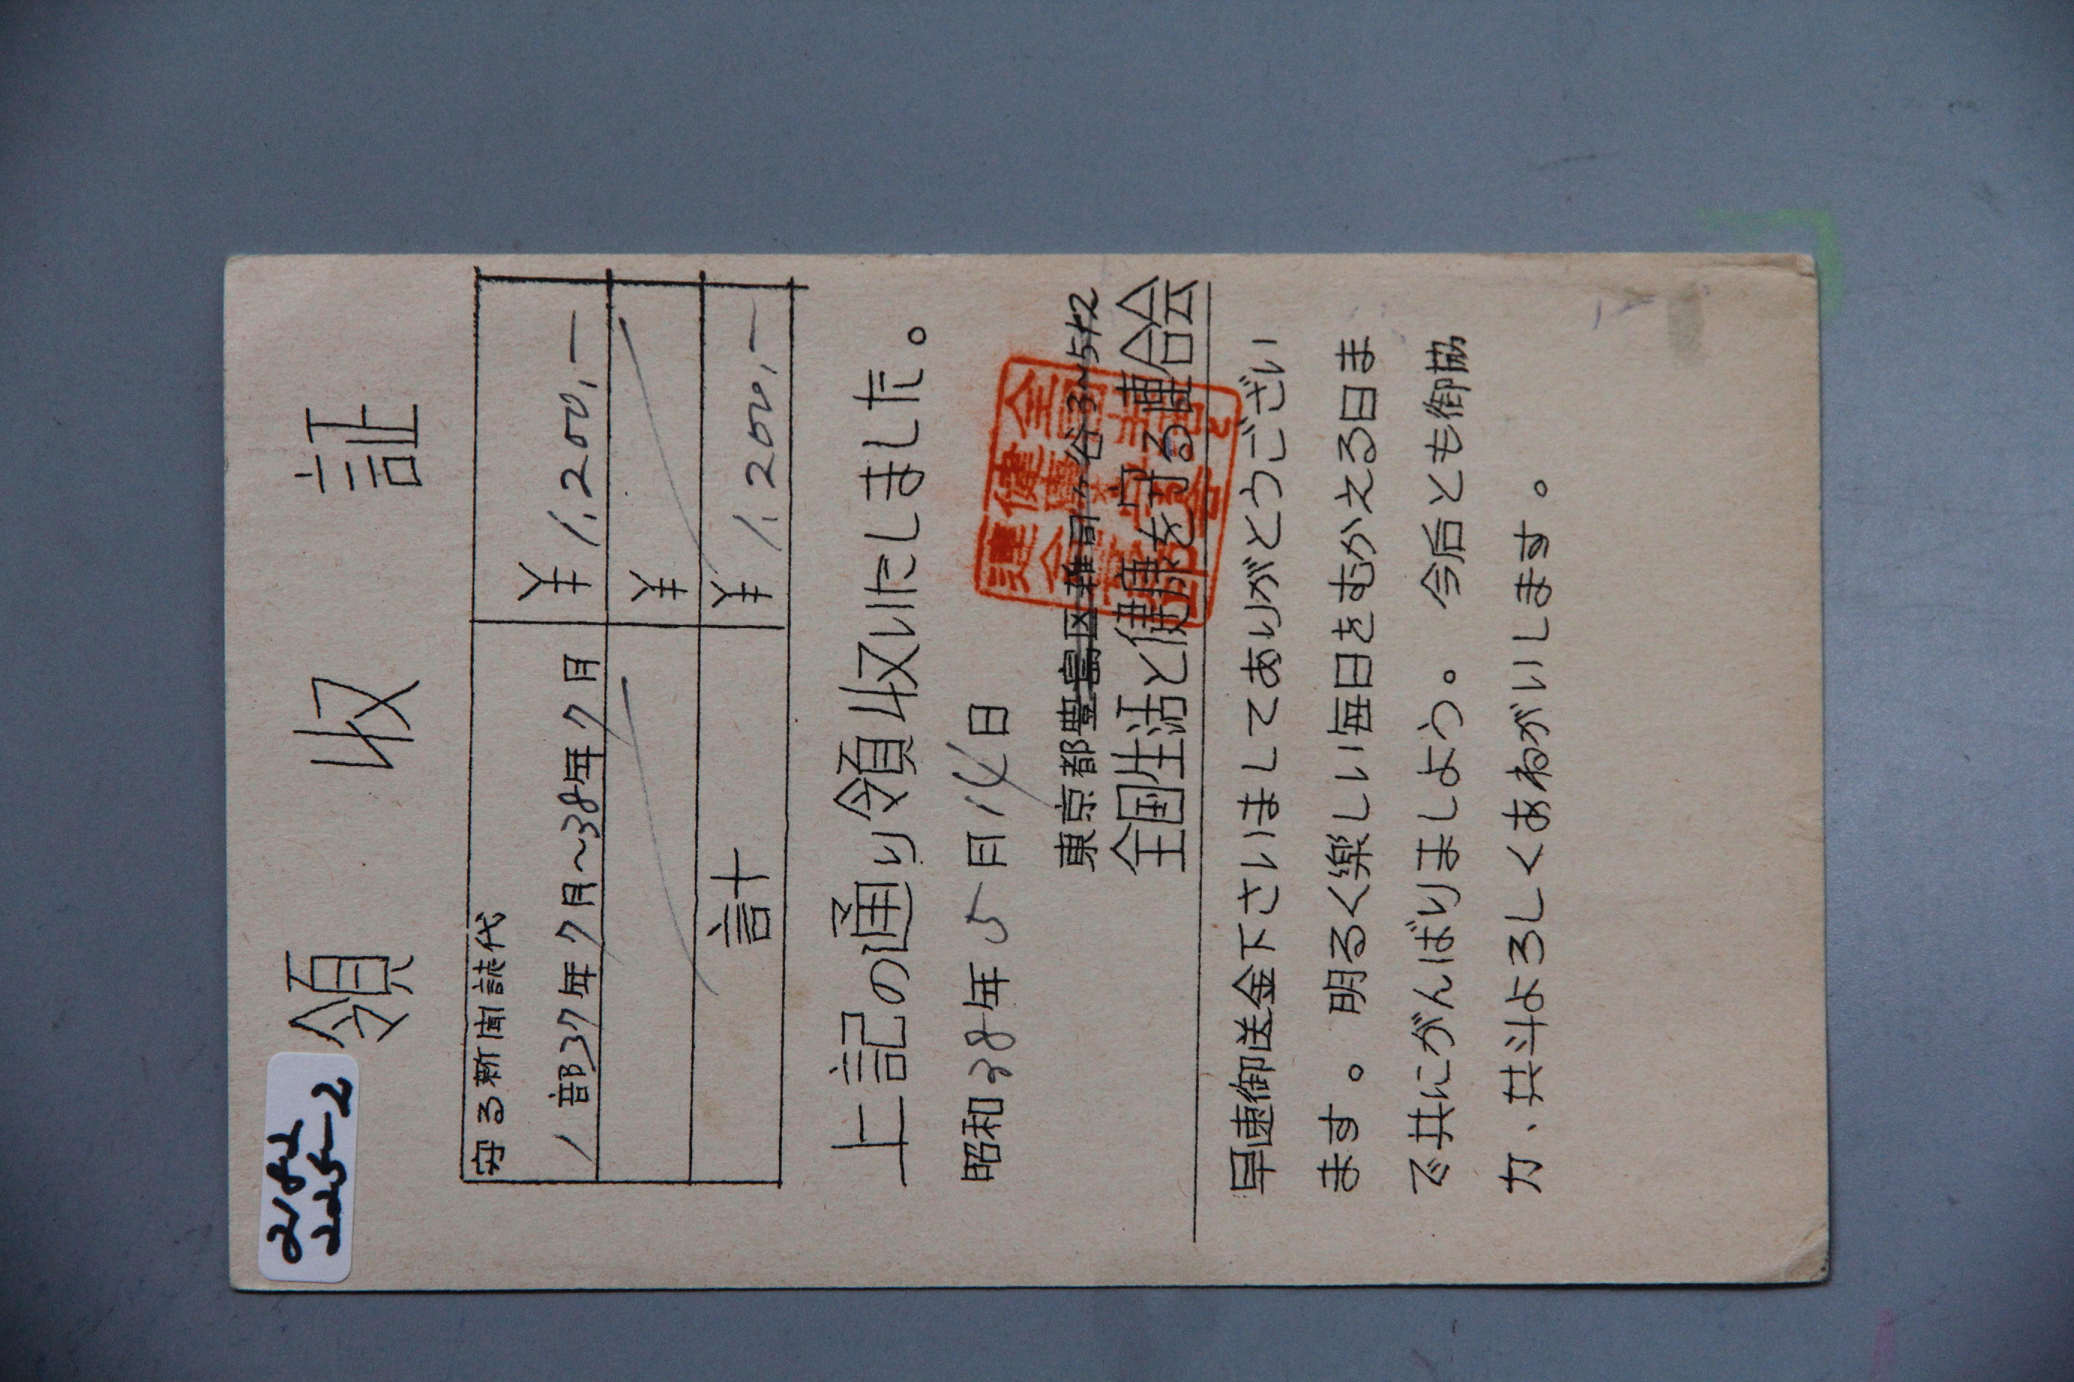 2182
2025-2
領収証
守る新聞誌代
1部37年7月～38年7月 ¥1,200,―
¥
計 ¥1,200,―
上記の通り領収いたしました。
昭和38年5月14日
東京都豊島区雑司ヶ谷3~512
全国生活と健康を守る連合会
早速御送金下さいましてありがとうござい
ます。明るく楽しい毎日をむかえる日ま
で共にがんばりましよう。今后とも御協
力、共斗よろしくおねがいします。